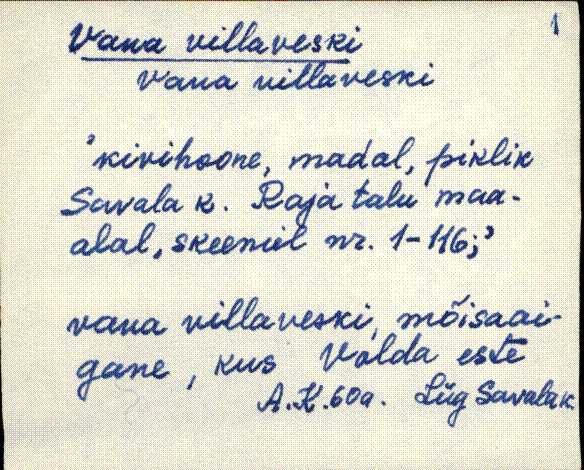 1
Vana villaveski
vana villaveski
'kivihoone, madal, piklik
Savala k. Raja talu maa-
alal, skeemil nr. 1-116;'
vana villaveski, mõisaai-
gane, kus Volda este
A.K. 60a. Lüg Savala k.